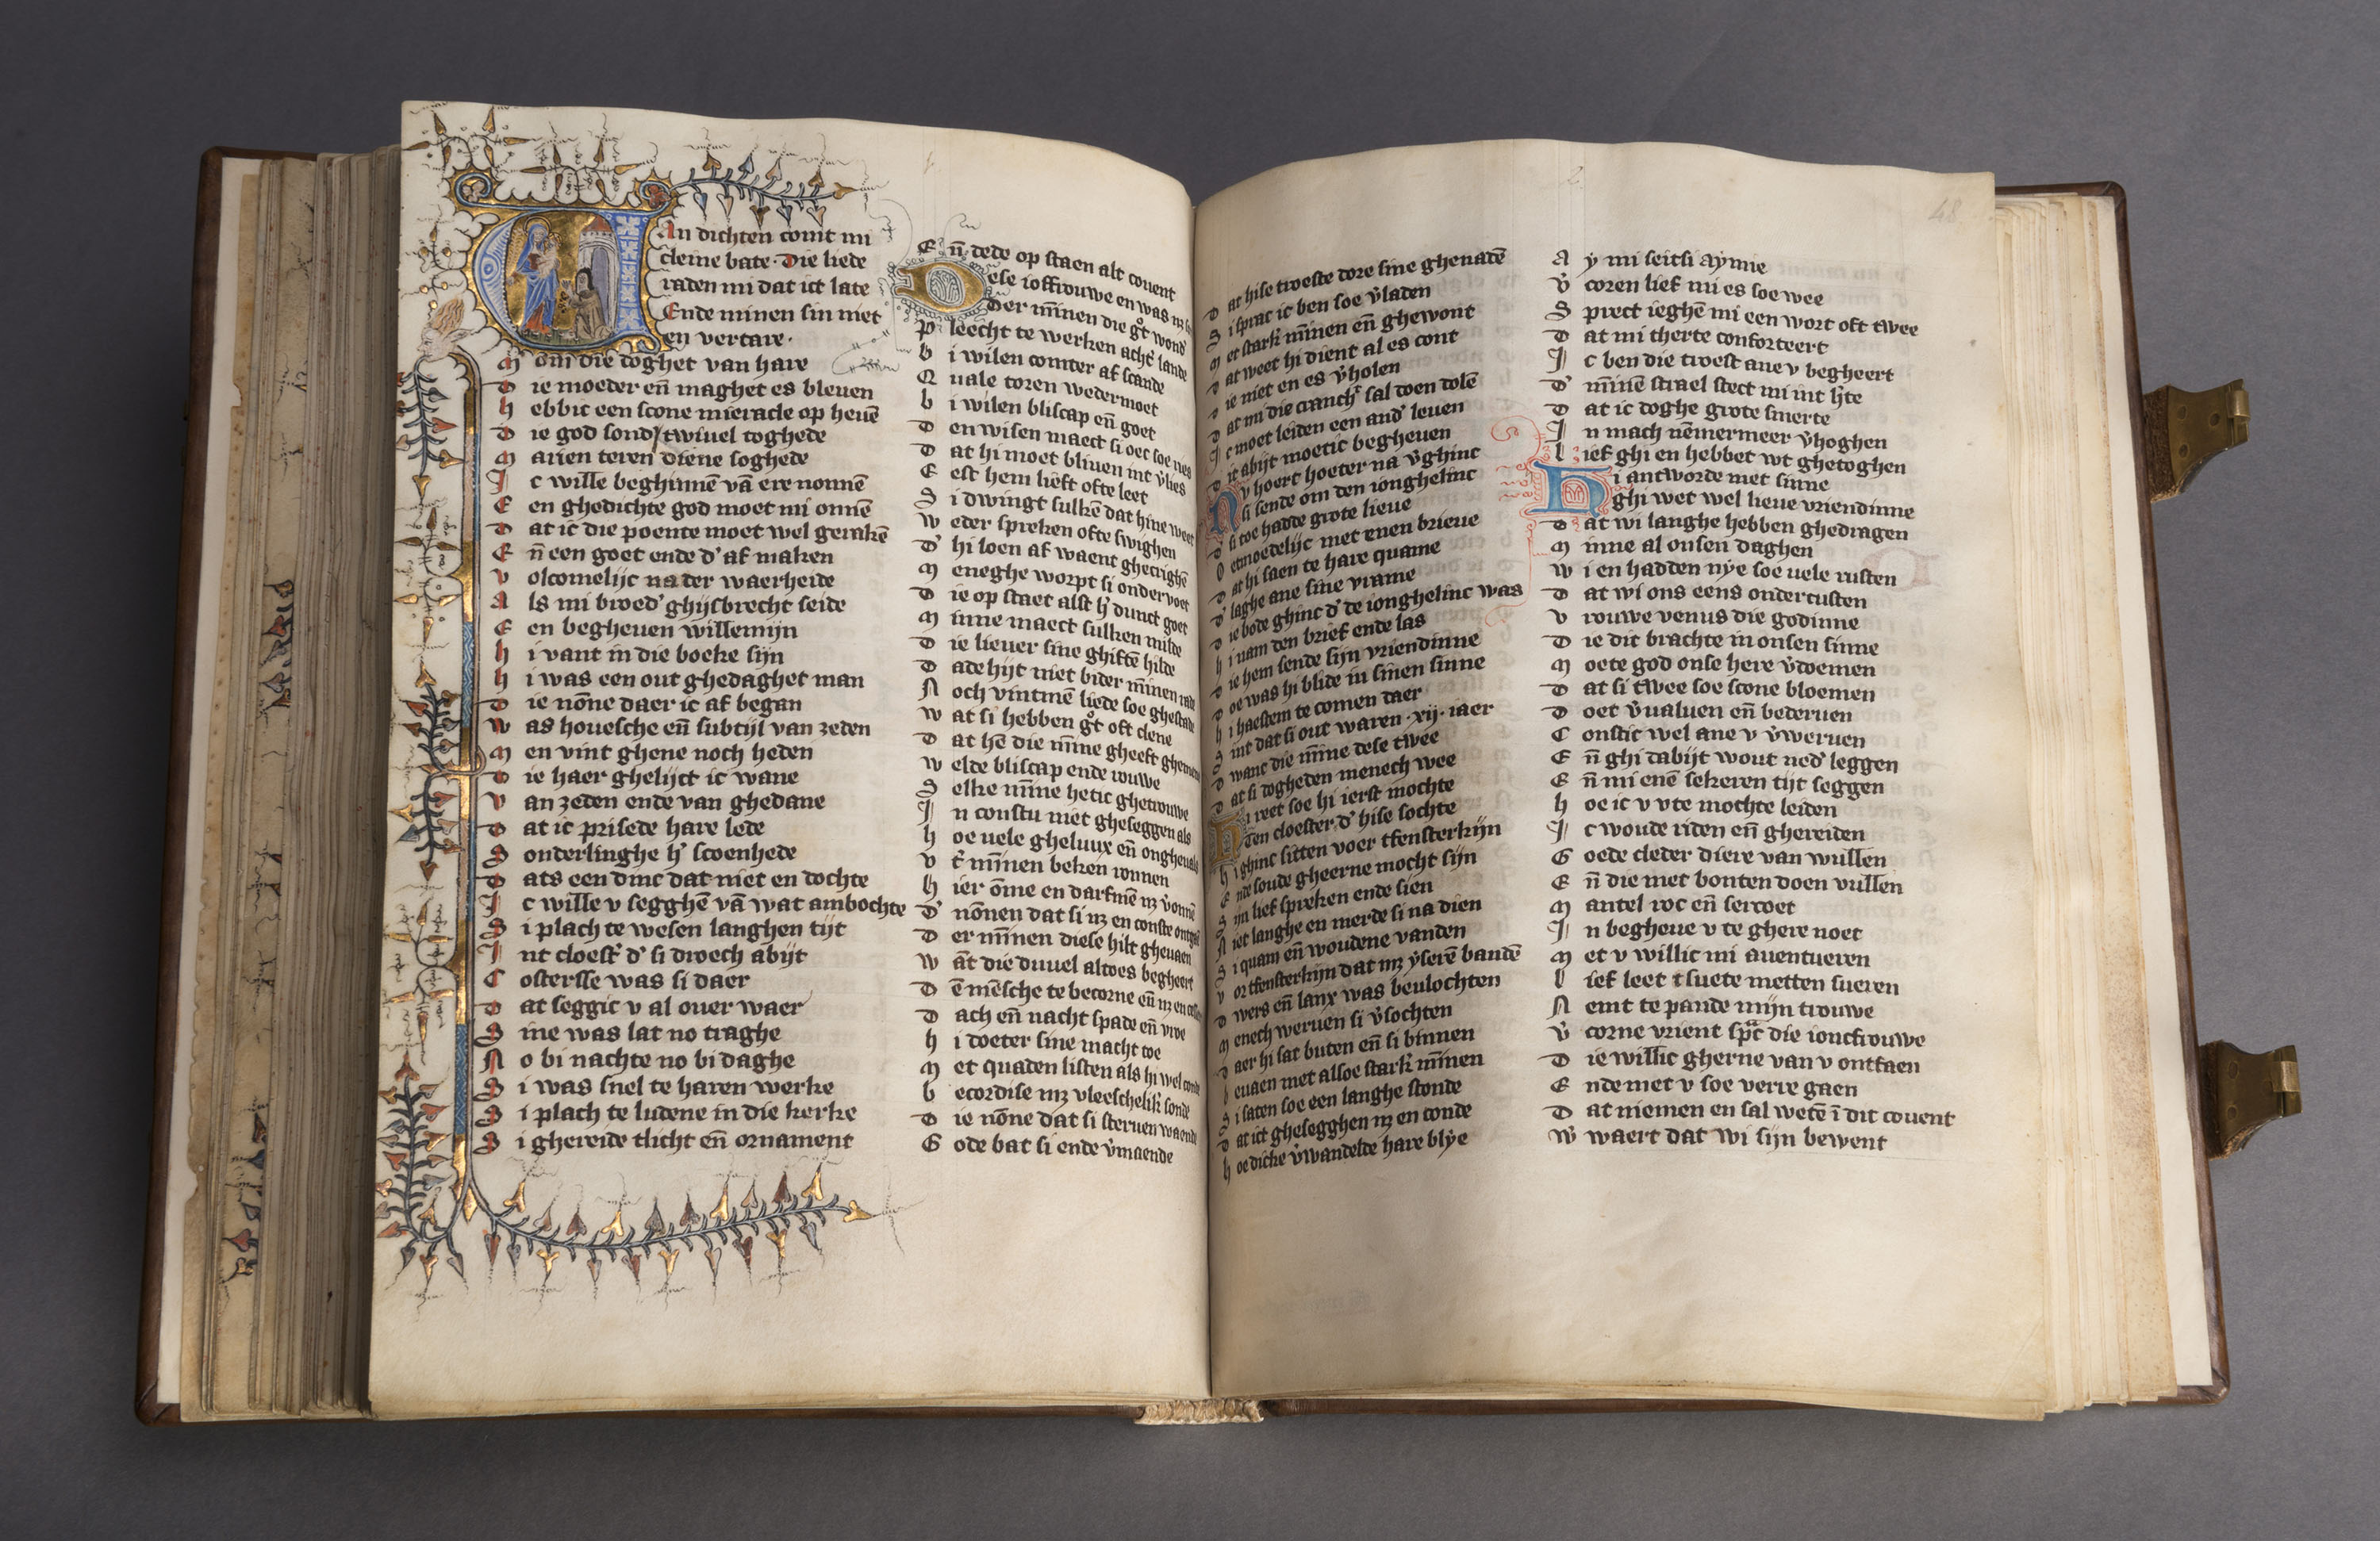 Van dichten comt mi
cleine bate. Die liede
raden mi dat ict late
Ende minen sin niet
en vertare.
M om die doghet van hare
D ie moeder eñ maghet es bleuen
h ebbic een scone mieracle op heuē
D ie god sond twiuel toghede
M arien teren diene soghede
I c wille beghinnē vā ere nonnē
E en ghedichte god moet mi onnē
D at ic die poente moet wel gerakē
E ñ een goet ende d' af maken
v olcomelijc na der waerheide
A ls mi broed' ghijsbrecht seide
E en begheuen willemijn
h i vant in die boeke sijn
h i was een out ghedaghet man
D ie nōne daer ic af began
w as houesche eñ subtijl van zeden
M en vint ghene noch heden
D ie haer ghelijct ic wane
v an zeden ende van ghedane
D at ic prisede hare lede
S onderlinghe h' scoenhede
D ats een dinc dat niet en dochte
I c wille v segghē vā wat ambochte
S i plach te wesen langhen tijt
I nt cloest' d' si droech abijt
C osterse was si daer
D at seggic v al ouer waer
S ine was lat no traghe
N o bi nachte no bi daghe
S i was snel te haren werke
S i plach te ludene in die kerke
S i ghereide tlicht eñ ornament
E ñ dede op staen alt couent
Dese ioffrouwe en was
Der m̄inen die g°t wond'
P leecht te werken acht' lande
b i wilen comter af scande
Q uale toren wedermoet
b i wilen bliscap eñ goet
D en wisen maect si oec soe
D at hi moet bliuen int v'lies
E est hem lieft ofte leet
S i dwingt sulkē dat hine weet
w eder spreken ofte swighen
D' hi loen af waent ghecrighē
M eneghe worpt si onder voet
D ie op staet alst h' dunct goet
M inne maect sulken milde
D ie lieuer sine ghiftē hilde
D ade hijt niet bider m̄inen rade
N och vintmē liede soe ghestade
w at si hebben g°t oft clene
D at hē die m̄ine gheeft
w elde bliscap ende rouwe
S elke m̄ine hetic ghetrouwe
I n constu niet gheseggen als
h oe uele gheluux eñ ongheuals
v t' m̄inen beken ronnen
h ier ōme en darfmē nz v'onnē
D' nōnen dat si nz en conste ontgaē
D er m̄inen diese hilt gheuaen
w āt die duuel altoes begheert
D ē mēsche te becorne eñ nz en
D ach eñ nacht spade eñ vroe
h i doeter sine macht toe
M et quaden listen als hi wel conde
b ecordise mz vleescheliker sonde
D ie nōne dat si steruen waende
G ode bat si ende v'maende
D at hise troeste dore sine ghenadē
S i sprac ic ben soe v'laden
M et stark' m̄inen eñ ghewont
D at weet hi dient al es cont
D ie niet en es v'holen
D at mi die cranch' sal doen dolē
I c moet leiden een and' leuen
D it abijt moetic begheuen
Nv hoert hoeter na v'ghinc
Si sende om den ionghelinc
D' si toe hadde grote lieue
O etmoedelijc met enen brieue
D at hi saen te hare quame
D' laghe ane sine vrame
D ie bode ghinc d' de ionghelinc was
h i nam den brief ende las
D ie hem sende sijn vriendinne
D oe was hi blide in sinen sinne
h i haestem te comen daer
S int dat si out waren .xij. iaer
D wanc die m̄ine dese twee
D at si dogheden menech wee
Hi reet soe hi ierst mochte
Ten cloester d' hise sochte
h i ghinc sitten voer tfensterkijn
E nde soude gheerne mocht sijn
S ijn lief spreken ende sien
N iet langhe en merde si na dien
S i quam eñ woudene vanden
v or tfensterkijn dat mz yserē bandē
D wers eñ lanx was beulochten
M enech weruen si v'sochten
D aer hi sat buten eñ si binnen
b euaen met alsoe stark' m̄inen
S i saten soe een langhe stonde
D at ict ghesegghen nz en conde
h oe dicke v'wandelde hare blye
48
A y mi seitsi aymie
v' coren lief mi es soe wee
S prect ieghē mi een wort oft twee
D at mi therte conforteert
I c ben die troest ane v begheert
D' m̄inē strael stect mi int h'te
D at ic doghe grote smerte
I n mach nēmermeer v'hoghen
l ief ghi en hebbet wt ghetoghen
Hi antworde met sinne
ghi wet wel lieue vriendinne
D at wi langhe hebben ghedragen
M inne al onsen daghen
w i en hadden nye soe uele rusten
D at wi ons eens ondercusten
v rouwe venus die godinne
D ie dit brachte in onsen sinne
M oete god onse here v'doemen
D at si twee soe scone bloemen
D oet v'ualuen eñ bederuen
C onstic wel ane v v'weruen
E ñ ghi dabijt wout ned' leggen
E ñ mi enē sekeren tijt seggen
h oe ic v vte mochte leiden
I c woude riden eñ ghereiden
G oede cleder diere van wullen
E ñ die met bonten doen vullen
M antel roc eñ sercoet
I n begheue v te ghere noet
M et v willic mi auentueren
l ief leet tsuete metten sueren
N emt te pande mijn trouwe
v' corne vrient sprac die ioncfrouwe
D ie willic gherne van v ontfaen
E nde met v soe verre gaen
D at niemen en sal wetē ī dit couent
w' waert dat wi sijn bewent